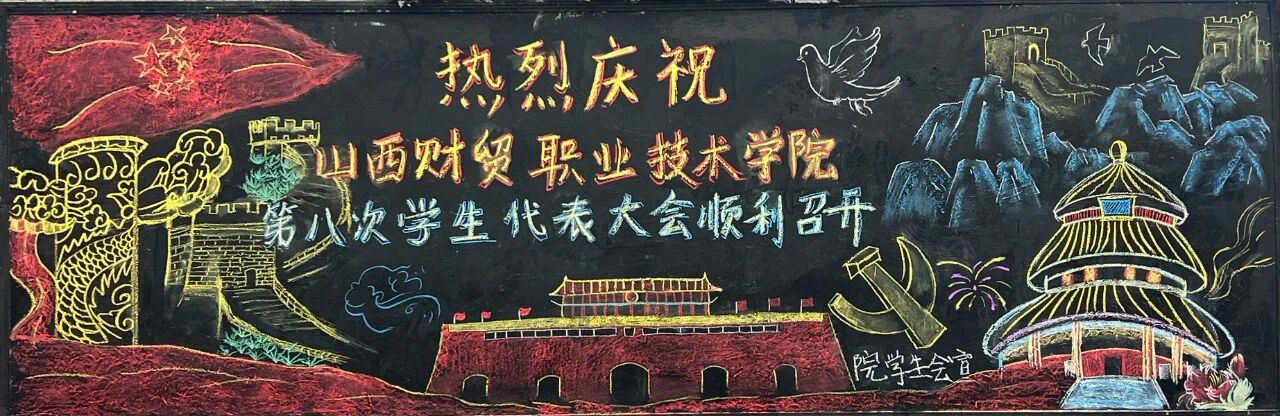 热烈庆祝
山西财贸职业技术学院
第八次学生代表大会顺利召开
院学生会宣